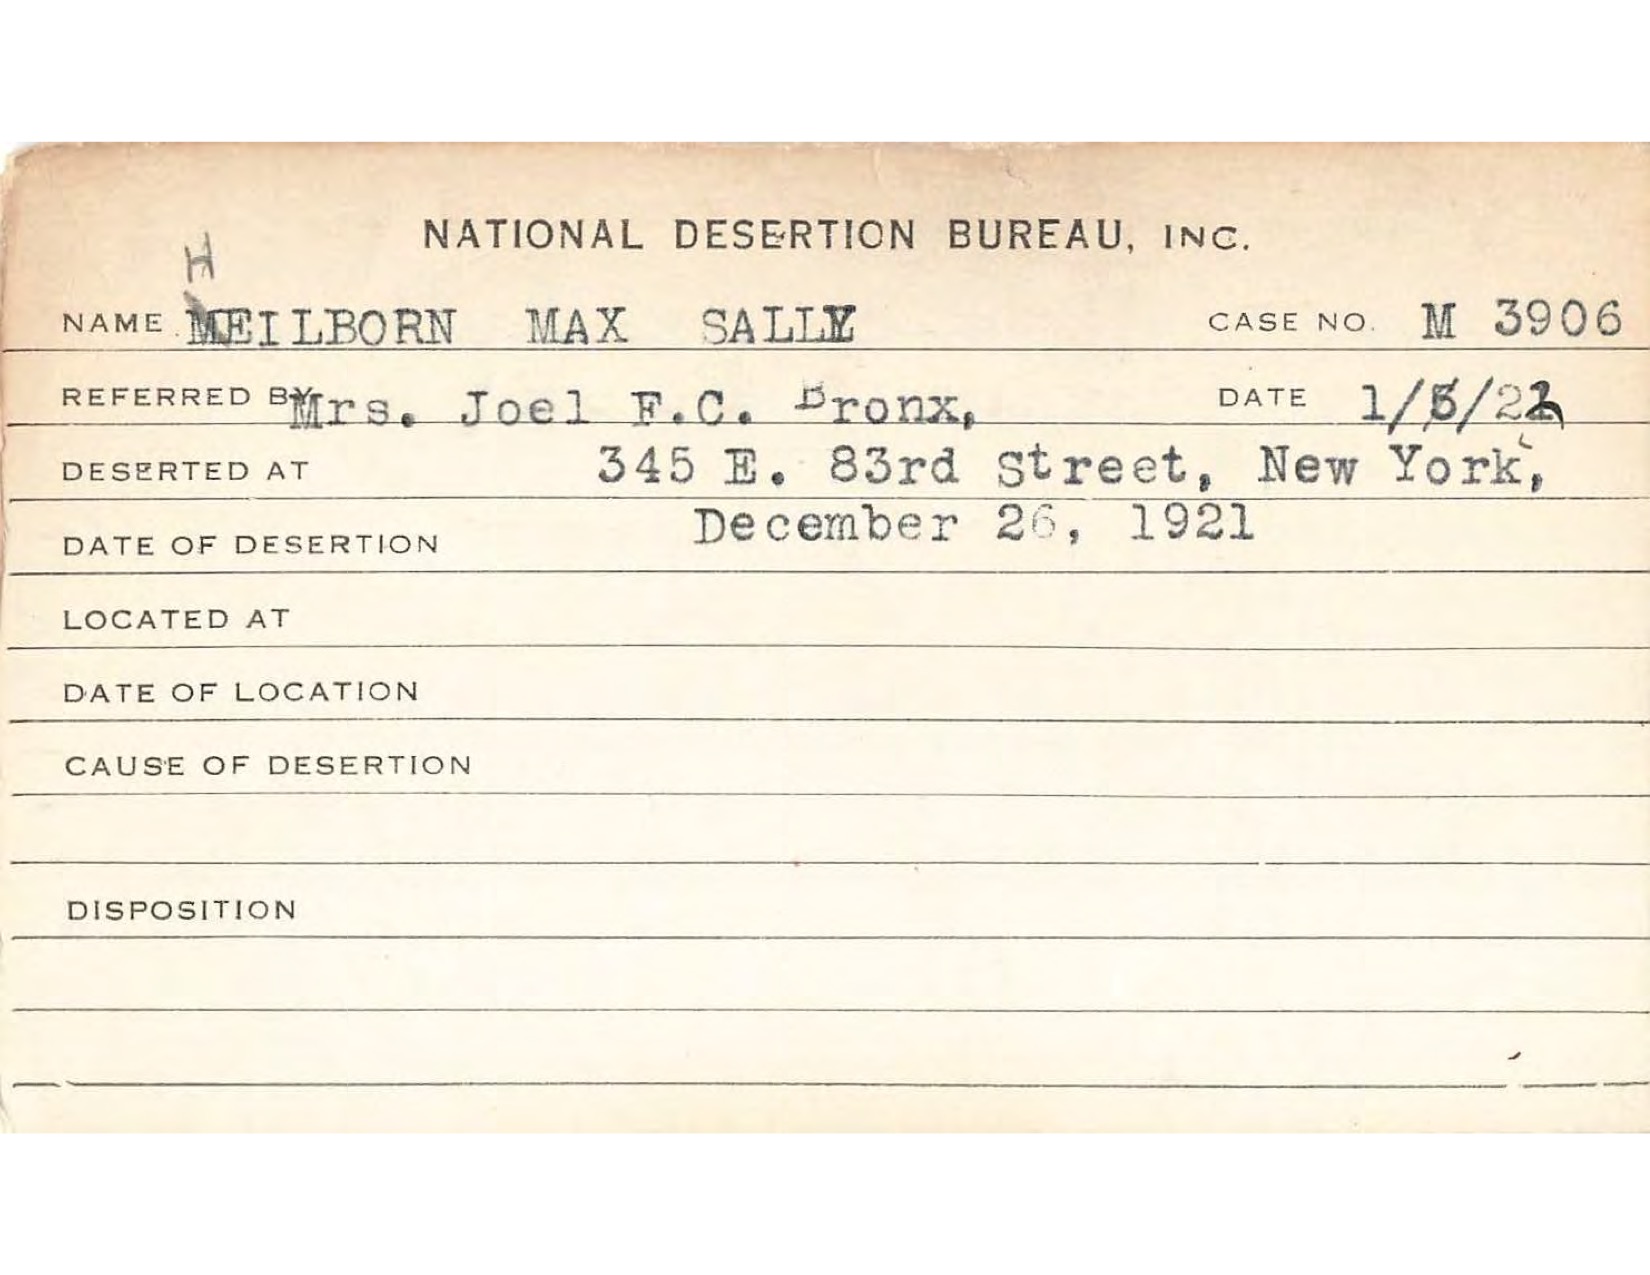 NATIONAL DESERTION BUREAU, INC.
H
NAME MEILBORN MAX SALLY CASE NO. M 3906
REFERRED BY Mrs. Joel F.C. Bronx, DATE 1/5/22
DESERTED AT 345 E. 83rd Street, New York,
DATE OF DESERTION December 26, 1921
LOCATED AT
DATE OF LOCATION
CAUSE OF DESERTION
DISPOSITION